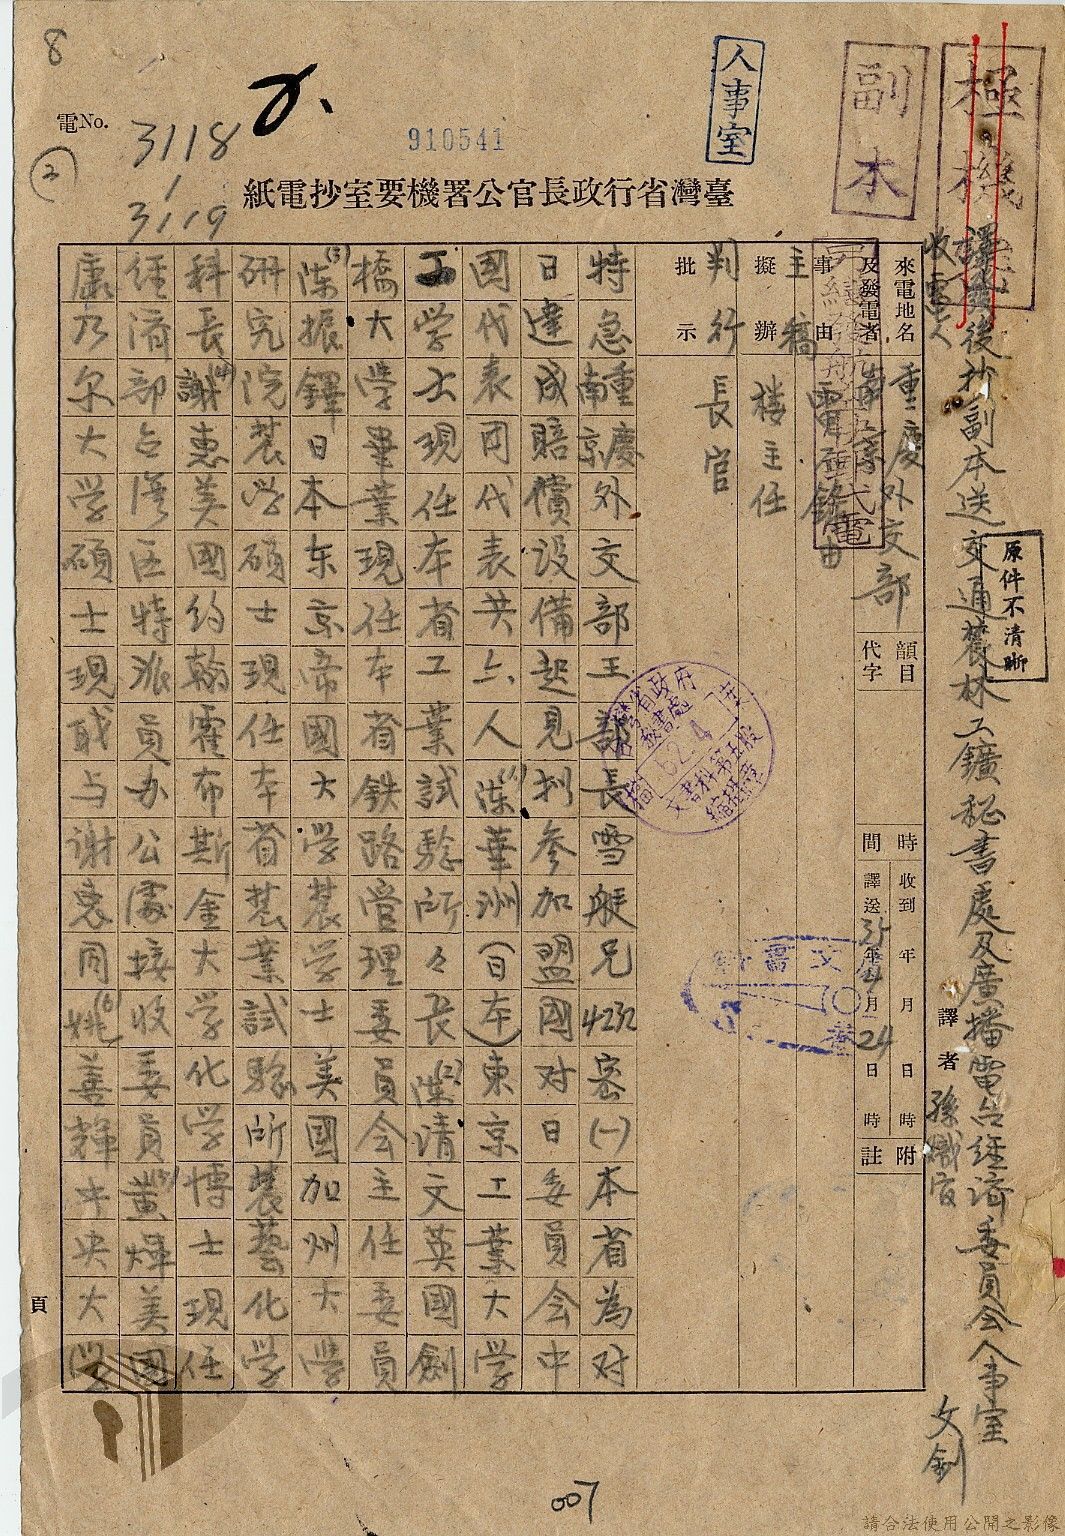 8
電No.
3118
/
3119
②
910541
人事室
副本
極機
臺灣省行政長官公署機要室抄電紙
譯發後抄副本送交通農林工鑛秘書處及廣播電台經濟委員會人事室
收電人
文釗
原件不清晰
譯者 孫熾宧
來電地名及發電者
重慶外交部
南京
韻目代字
時間
收到 年 月 日 時
譯送 35年4月24日 時
附註
事由
主稿
擬辦
樓主任
判行
長官
批示
特急南京重慶外交部王部長雪艇兄4232密(一)本省為对
日達成賠償設備起見擬參加盟國对日委員会中
國代表团代表共六人(1)陳華洲(日本)東京工業大学
工学士現任本省工業試驗所々長(2)陳清文英國劍
橋大学畢業現任本省鉄路管理委員会主任委員
(3)陳振鐸日本东京帝國大学農学士美國加州大学
研究院農学碩士現任本省農業試驗所農藝化学
科長(4)謝惠美國約翰霍布斯金大学化学博士現任
經濟部台湾区特派員办公處接收委員(5)黄煇美國
康乃尔大学碩士現职与謝惠同(6)姚善輝中央大学
頁
007
請合法使用公開之影像